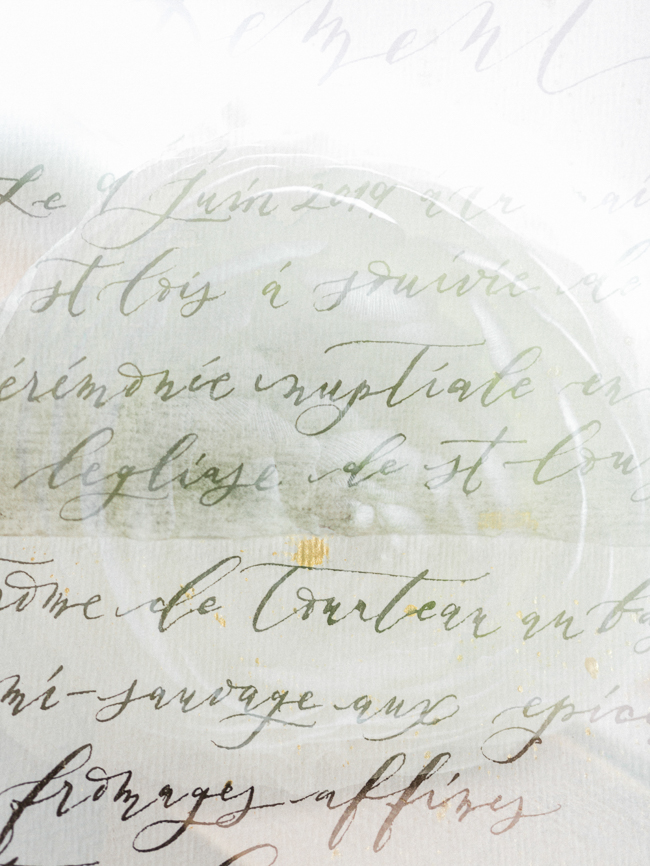 ement
Le 9 Juin 2019 a
st lois á souivie de
érémonie nuptiale en
legliase de st lou
rome de Tourteau au ba
mi-sauvage aux epice
fromages affines